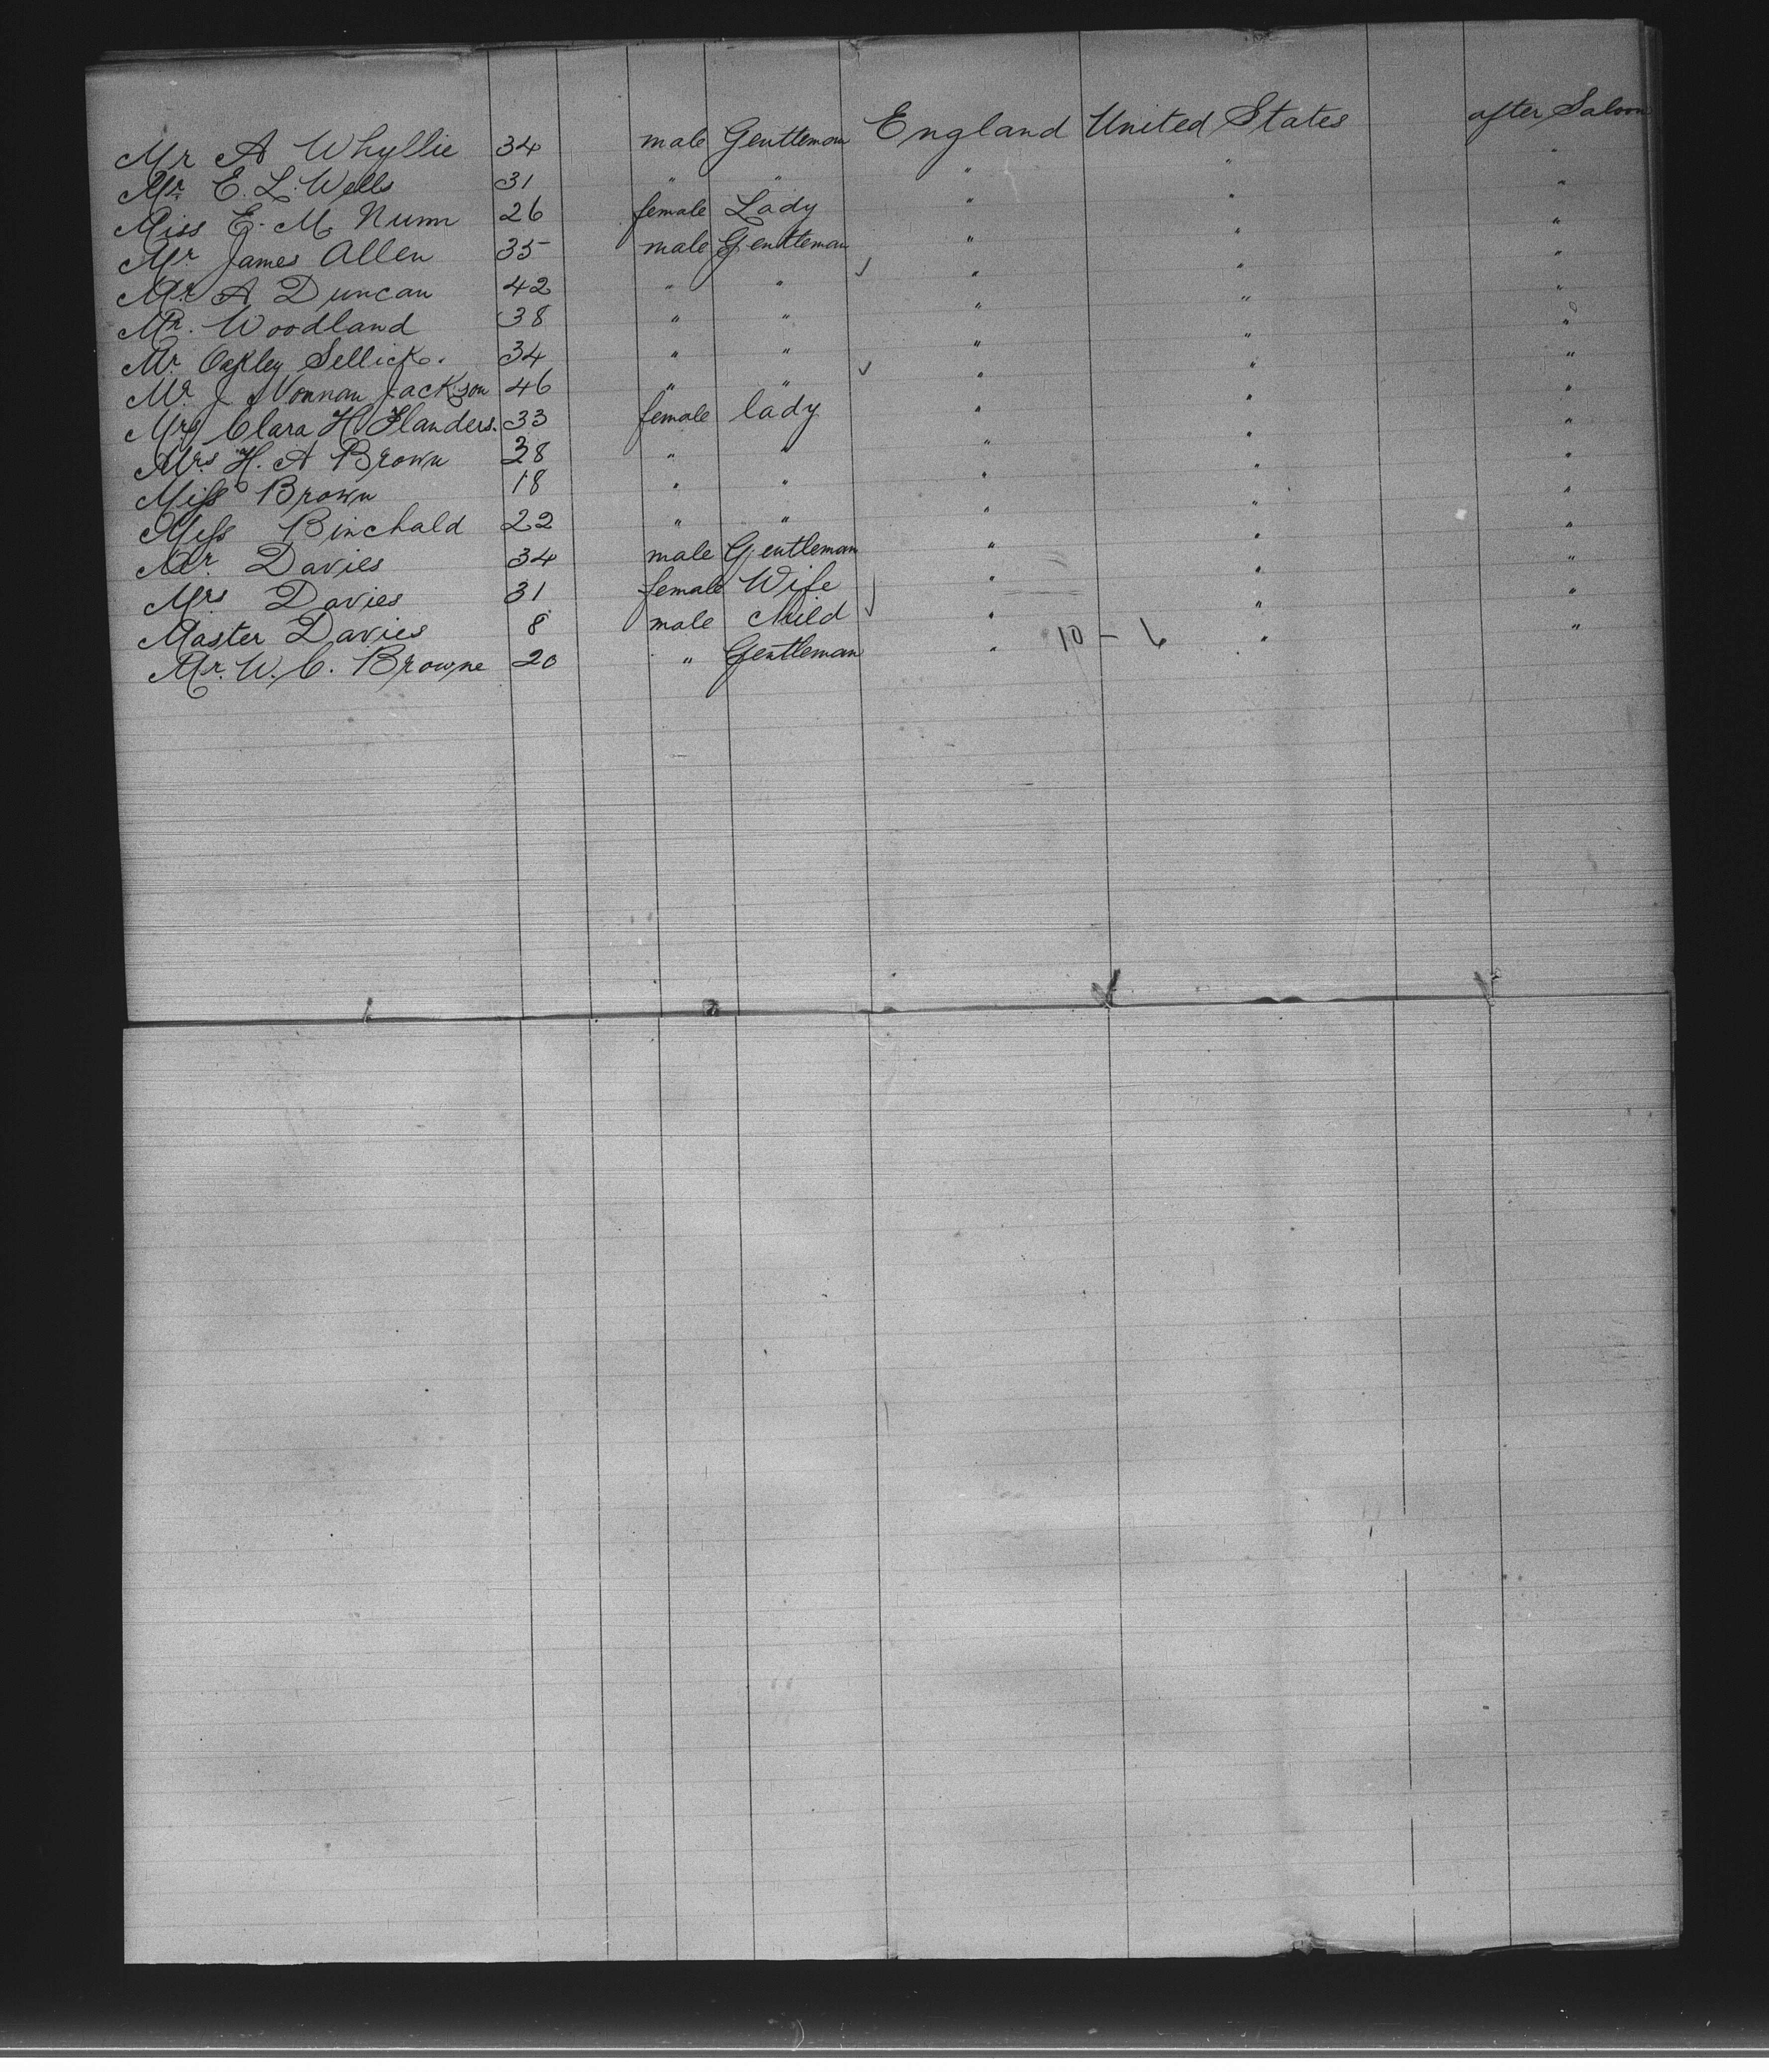 Mr A Whyllie 34 male Gentleman England United States after Saloon
Mr E. L. Wells 31 " " " " "
Miss E. M. Nunn 26 female Lady " " "
Mr James Allen 35 male Gentleman " " "
Mr A Duncan 42 " " " " "
Mr. Woodland 38 " " " " "
Mr Oakley Sellick. 34 " " " " "
Mr J Norman Jackson 46 " " " " "
Mrs Clara H Flanders. 33 female lady " " "
Mrs H. A Brown 38 " " " " "
Miss Brown 18 " " " " "
Miss Binchald 22 " " " " "
Mr. Davies 34 male Gentleman " " "
Mrs Davies 31 female Wife " " "
Master Davies 8 male Child " " "
Mr. W. C. Browne 20 " Gentleman " " "
10 - 6